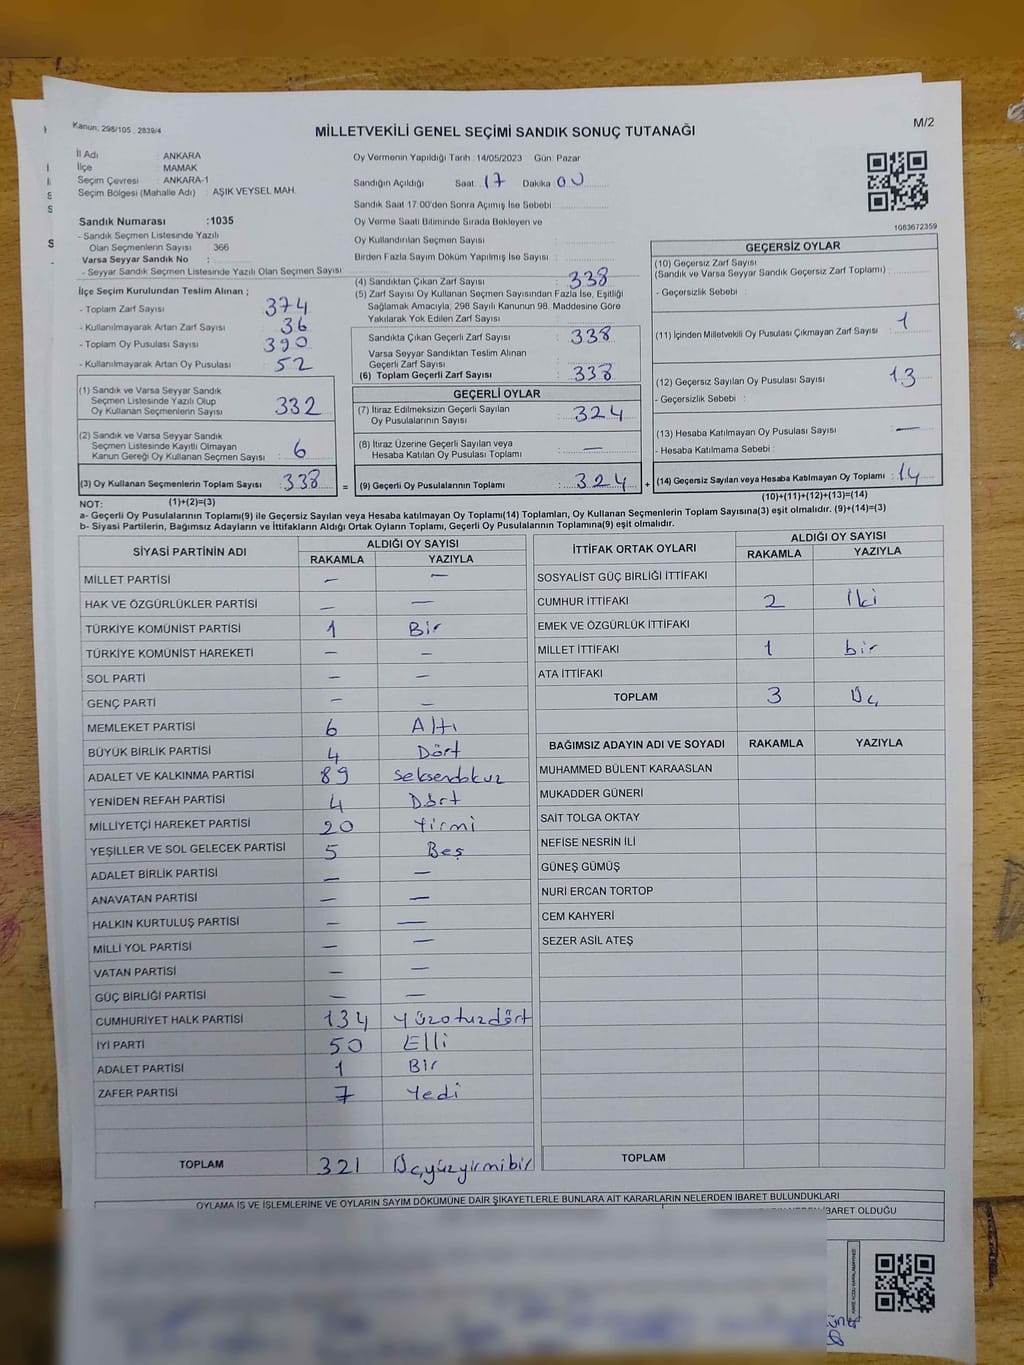 Kanun; 298/105 , 2839/4
MİLLETVEKİLİ GENEL SEÇİMİ SANDIK SONUÇ TUTANAĞI
M/2
İl Adı : ANKARA
İlçe : MAMAK
Seçim Çevresi : ANKARA-1
Seçim Bölgesi (Mahalle Adı) : AŞIK VEYSEL MAH.
Sandık Numarası :1035
- Sandık Seçmen Listesinde Yazılı
Olan Seçmenlerin Sayısı 366
Varsa Seyyar Sandık No :
- Seyyar Sandık Seçmen Listesinde Yazılı Olan Seçmen Sayısı
İlçe Seçim Kurulundan Teslim Alınan ;
- Toplam Zarf Sayısı : 374
- Kullanılmayarak Artan Zarf Sayısı : 36
- Toplam Oy Pusulası Sayısı : 390
- Kullanılmayarak Artan Oy Pusulası : 52
(1) Sandık ve Varsa Seyyar Sandık
Seçmen Listesinde Yazılı Olup
Oy Kullanan Seçmenlerin Sayısı : 332
(2) Sandık ve Varsa Seyyar Sandık
Seçmen Listesinde Kayıtlı Olmayan
Kanun Gereği Oy Kullanan Seçmen Sayısı : 6
(3) Oy Kullanan Seçmenlerin Toplam Sayısı : 338
Oy Vermenin Yapıldığı Tarih : 14/05/2023 Gün: Pazar
Sandığın Açıldığı Saat: 17 Dakika: 00
Sandık Saat 17:00'den Sonra Açımış İse Sebebi :
Oy Verme Saati Bitiminde Sırada Bekleyen ve
Oy Kullandırılan Seçmen Sayısı :
Birden Fazla Sayım Döküm Yapılmış İse Sayısı :
(4) Sandıktan Çıkan Zarf Sayısı : 338
(5) Zarf Sayısı Oy Kullanan Seçmen Sayısından Fazla İse, Eşitliği
Sağlamak Amacıyla, 298 Sayılı Kanunun 98. Maddesine Göre
Yakılarak Yok Edilen Zarf Sayısı :
Sandıkta Çıkan Geçerli Zarf Sayısı : 338
Varsa Seyyar Sandıktan Teslim Alınan
Geçerli Zarf Sayısı :
(6) Toplam Geçerli Zarf Sayısı : 338
GEÇERLİ OYLAR
(7) İtiraz Edilmeksizin Geçerli Sayılan
Oy Pusulalarının Sayısı : 324
(8) İtiraz Üzerine Geçerli Sayılan veya
Hesaba Katılan Oy Pusulası Toplamı : —
= (9) Geçerli Oy Pusulalarının Toplamı : 324 +
1083672359
GEÇERSİZ OYLAR
(10) Geçersiz Zarf Sayısı
(Sandık ve Varsa Seyyar Sandık Geçersiz Zarf Toplamı) :
- Geçersizlik Sebebi :
(11) İçinden Milletvekili Oy Pusulası Çıkmayan Zarf Sayısı : 1
(12) Geçersiz Sayılan Oy Pusulası Sayısı : 13
- Geçersizlik Sebebi :
(13) Hesaba Katılmayan Oy Pusulası Sayısı : —
- Hesaba Katılmama Sebebi :
(14) Geçersiz Sayılan veya Hesaba Katılmayan Oy Toplamı : 14
NOT: (1)+(2)=(3) (10)+(11)+(12)+(13)=(14)
a- Geçerli Oy Pusulalarının Toplamı(9) ile Geçersiz Sayılan veya Hesaba Katılmayan Oy Toplamı(14) Toplamları, Oy Kullanan Seçmenlerin Toplam Sayısına(3) eşit olmalıdır. (9)+(14)=(3)
b- Siyasi Partilerin, Bağımsız Adayların ve İttifakların Aldığı Ortak Oyların Toplamı, Geçerli Oy Pusulalarının Toplamına(9) eşit olmalıdır.
SİYASİ PARTİNİN ADI ALDIĞI OY SAYISI
RAKAMLA YAZIYLA
MİLLET PARTİSİ — —
HAK VE ÖZGÜRLÜKLER PARTİSİ — —
TÜRKİYE KOMÜNİST PARTİSİ 1 Bir
TÜRKİYE KOMÜNİST HAREKETİ — —
SOL PARTİ — —
GENÇ PARTİ — —
MEMLEKET PARTİSİ 6 Altı
BÜYÜK BİRLİK PARTİSİ 4 Dört
ADALET VE KALKINMA PARTİSİ 89 Seksendokuz
YENİDEN REFAH PARTİSİ 4 Dört
MİLLİYETÇİ HAREKET PARTİSİ 20 Yirmi
YEŞİLLER VE SOL GELECEK PARTİSİ 5 Beş
ADALET BİRLİK PARTİSİ — —
ANAVATAN PARTİSİ — —
HALKIN KURTULUŞ PARTİSİ — —
MİLLİ YOL PARTİSİ — —
VATAN PARTİSİ — —
GÜÇ BİRLİĞİ PARTİSİ — —
CUMHURİYET HALK PARTİSİ 134 Yüzotuzdört
İYİ PARTİ 50 Elli
ADALET PARTİSİ 1 Bir
ZAFER PARTİSİ 7 Yedi
TOPLAM 321 Üçyüzyirmibir
İTTİFAK ORTAK OYLARI ALDIĞI OY SAYISI
RAKAMLA YAZIYLA
SOSYALİST GÜÇ BİRLİĞİ İTTİFAKI
CUMHUR İTTİFAKI 2 İki
EMEK VE ÖZGÜRLÜK İTTİFAKI
MİLLET İTTİFAKI 1 bir
ATA İTTİFAKI
TOPLAM 3 Üç
BAĞIMSIZ ADAYIN ADI VE SOYADI RAKAMLA YAZIYLA
MUHAMMED BÜLENT KARAASLAN
MUKADDER GÜNERİ
SAİT TOLGA OKTAY
NEFİSE NESRİN İLİ
GÜNEŞ GÜMÜŞ
NURİ ERCAN TORTOP
CEM KAHYERİ
SEZER ASİL ATEŞ
TOPLAM
OYLAMA İŞ VE İŞLEMLERİNE VE OYLARIN SAYIM DÖKÜMÜNE DAİR ŞİKAYETLERLE BUNLARA AİT KARARLARIN NELERDEN İBARET BULUNDUKLARI
İBARET OLDUĞU